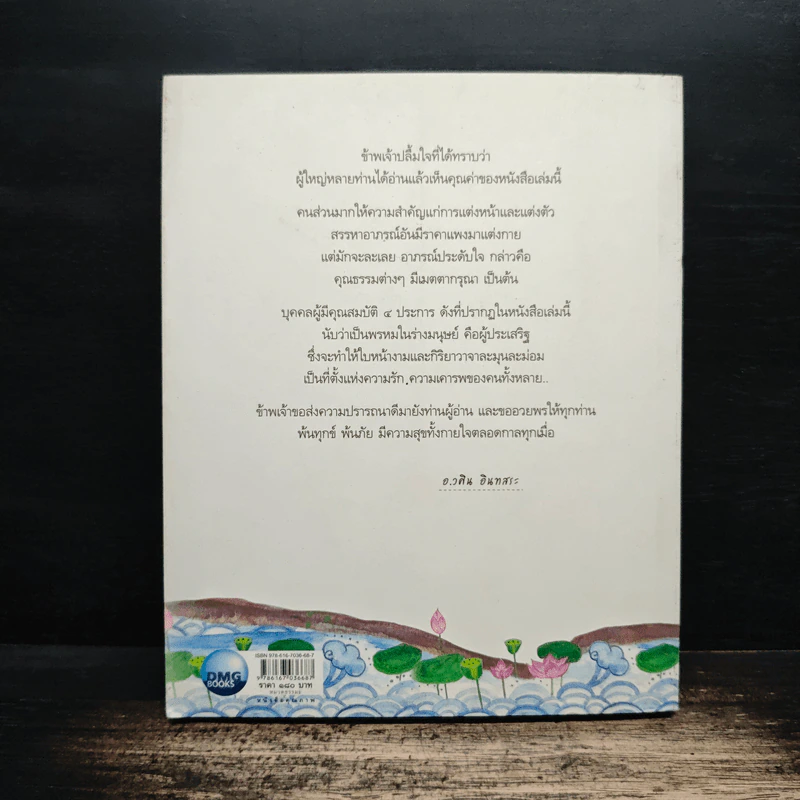 ข้าพเจ้าปลื้มใจที่ได้ทราบว่า
ผู้ใหญ่หลายท่านได้อ่านแล้วเห็นคุณค่าของหนังสือเล่มนี้
คนส่วนมากให้ความสำคัญแก่การแต่งหน้าและแต่งตัว
สรรหาอาภรณ์อันมีราคาแพงมาแต่งกาย
แต่มักจะละเลย อาภรณ์ประดับใจ กล่าวคือ
คุณธรรมต่างๆ มีเมตตากรุณา เป็นต้น
บุคคลผู้มีคุณสมบัติ ๔ ประการ ดังที่ปรากฏในหนังสือเล่มนี้
นับว่าเป็นพรหมในร่างมนุษย์ คือผู้ประเสริฐ
ซึ่งจะทำให้ใบหน้างามและกิริยาวาจาละมุนละม่อม
เป็นที่ตั้งแห่งความรัก ความเคารพของคนทั้งหลาย..
ข้าพเจ้าขอส่งความปรารถนาดีมายังท่านผู้อ่าน และขออวยพรให้ทุกท่าน
พ้นทุกข์ พ้นภัย มีความสุขทั้งกายใจตลอดกาลทุกเมื่อ
อ.วศิน อินทสระ
ISBN 978-616-7036-68-7
9 786167 036687
DMG
BOOKS
ราคา ๑๘๐ บาท
หมวดธรรมะ